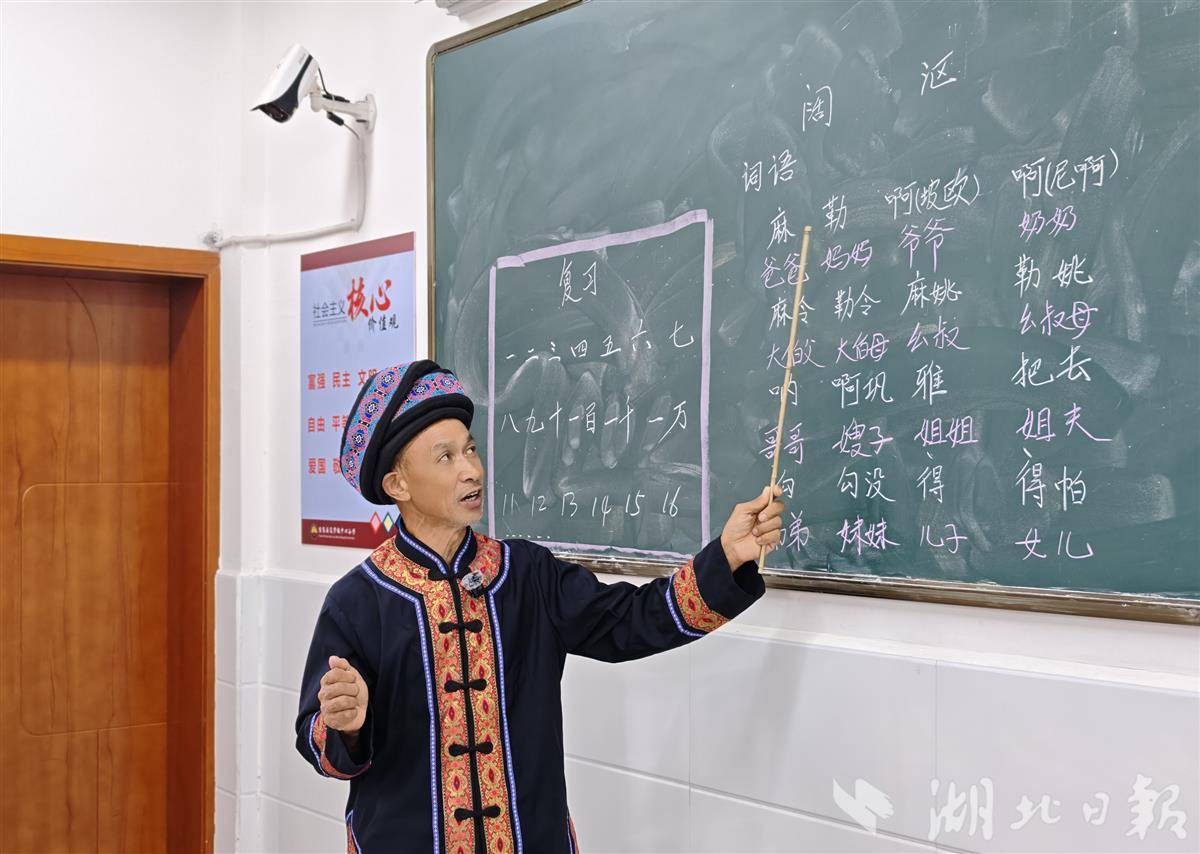 社会主义 核心
价值观
富强 民主 文明
自由 平等
爱国
复习
一 二 三 四 五 六 七
八 九 十 一百 一千 一万
11 12 13 14 15 16
......
阔 沤
词语
麻 勒 啊(坡欧) 啊(尼啊)
爸爸 妈妈 爷爷 奶奶
麻令 勒令 麻姚 勒姚
大伯父 大伯母 幺叔 幺叔母
呐 啊巩 雅 把去
哥哥 嫂子 姐姐 姐夫
勾 勾没 得 得帕
弟 妹妹 儿子 女儿
湖北日報